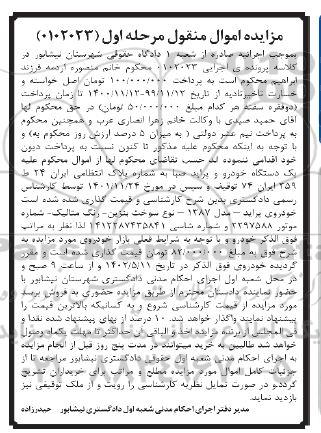 مزایده اموال منقول مرحله اول (۰۱۰۲۰۲۳)
بموجب اجرائیه صادره از شعبه ۱ دادگاه حقوقی شهرستان نیشابور در
کلاسه پرونده ی اجرایی ۰۱۰۲۰۲۳ محکوم خانم منصوره ازدمه فرزند
ابراهیم محکوم است به پرداخت ۱۰۰/۰۰۰/۰۰۰ تومان اصل خواسته و
خسارت تاخیرتادیه از تاریخ ۹۹/۱۱/۱۳-۱۴۰۰/۱۱/۱۳ تا زمان پرداخت
(دوفقره سفته هر کدام مبلغ ۵۰/۰۰۰/۰۰۰ تومان) در حق محکوم لها
آقای حمید صیدی با وکالت خانم زهرا انصاری عرب و همچنین محکوم
به پرداخت نیم عشر دولتی ( به میزان ۵ درصد ارزش روز محکوم به) و
با توجه به اینکه محکوم علیه مذکور تا کنون نسبت به پرداخت دیون
خود اقدامی ننموده لذا حسب تقاضای محکوم لها از اموال محکوم علیه
یک دستگاه خودرو و پراید صبا به شماره پلاک انتظامی ایران ۲۴ ط
۳۵۹ ایران ۷۴ توقیف و سپس در مورخ ۱۴۰۱/۱۱/۲۴ توسط کارشناس
رسمی دادگستری بدین شرح کارشناسی و قیمت گذاری شده شده است
خودروی پراید – مدل ۱۳۸۷ – نوع سوخت بنزین- رنگ متالیک- شماره
موتور ۲۳۹۷۵۸۸ و شماره شاسی لذا نظر به مراتب
فوق الذکر خودرو و با توجه به شرایط فعلی بازار خودروی مورد مزایده به
شرح فوق به مبلغ ۸۲/۰۰۰/۰۰۰ تومان قیمت گذاری شده است و مقرر
گردیده خودروی فوق الذکر در تاریخ ۱۴۰۲/۵/۱۱ و از ساعت ۹ صبح و
در محل شعبه اول اجرای احکام مدنی دادگستری شهرستان نیشابور با
حضور نماینده دادستان محترم از طریق مزایده حضوری به فروش برسد
مورد مزایده از قیمت کارشناسی شروع و به کسانیکه بالاترین قیمت را
پیشنهاد نمایند واگذار خواهد شد. ۱۰ درصد از بهای پیشنهاد شده نقدا و
فی المجلس از برنده مزایده اخذ و الباقی حداکثر تا مهلت یکماه وصول
خواهد شد طالبین به خرید میتوانند در مدت پنج روز قبل از انجام مزایده
به اجرای احکام مدنی شعبه اول حقوقی دادگستری نیشابور مراجعه تا از
جزئیات کامل اموال مورد مزایده مطلع و مراتب برای خریداران تشریح
گردد و در صورت تمایل نظریه کارشناسی را رویت و از ملک توقیفی نیز
بازدید نماید.
مدیر دفتر اجرای احکام مدنی شعبه اول دادگستری نیشابور حیدرزاده